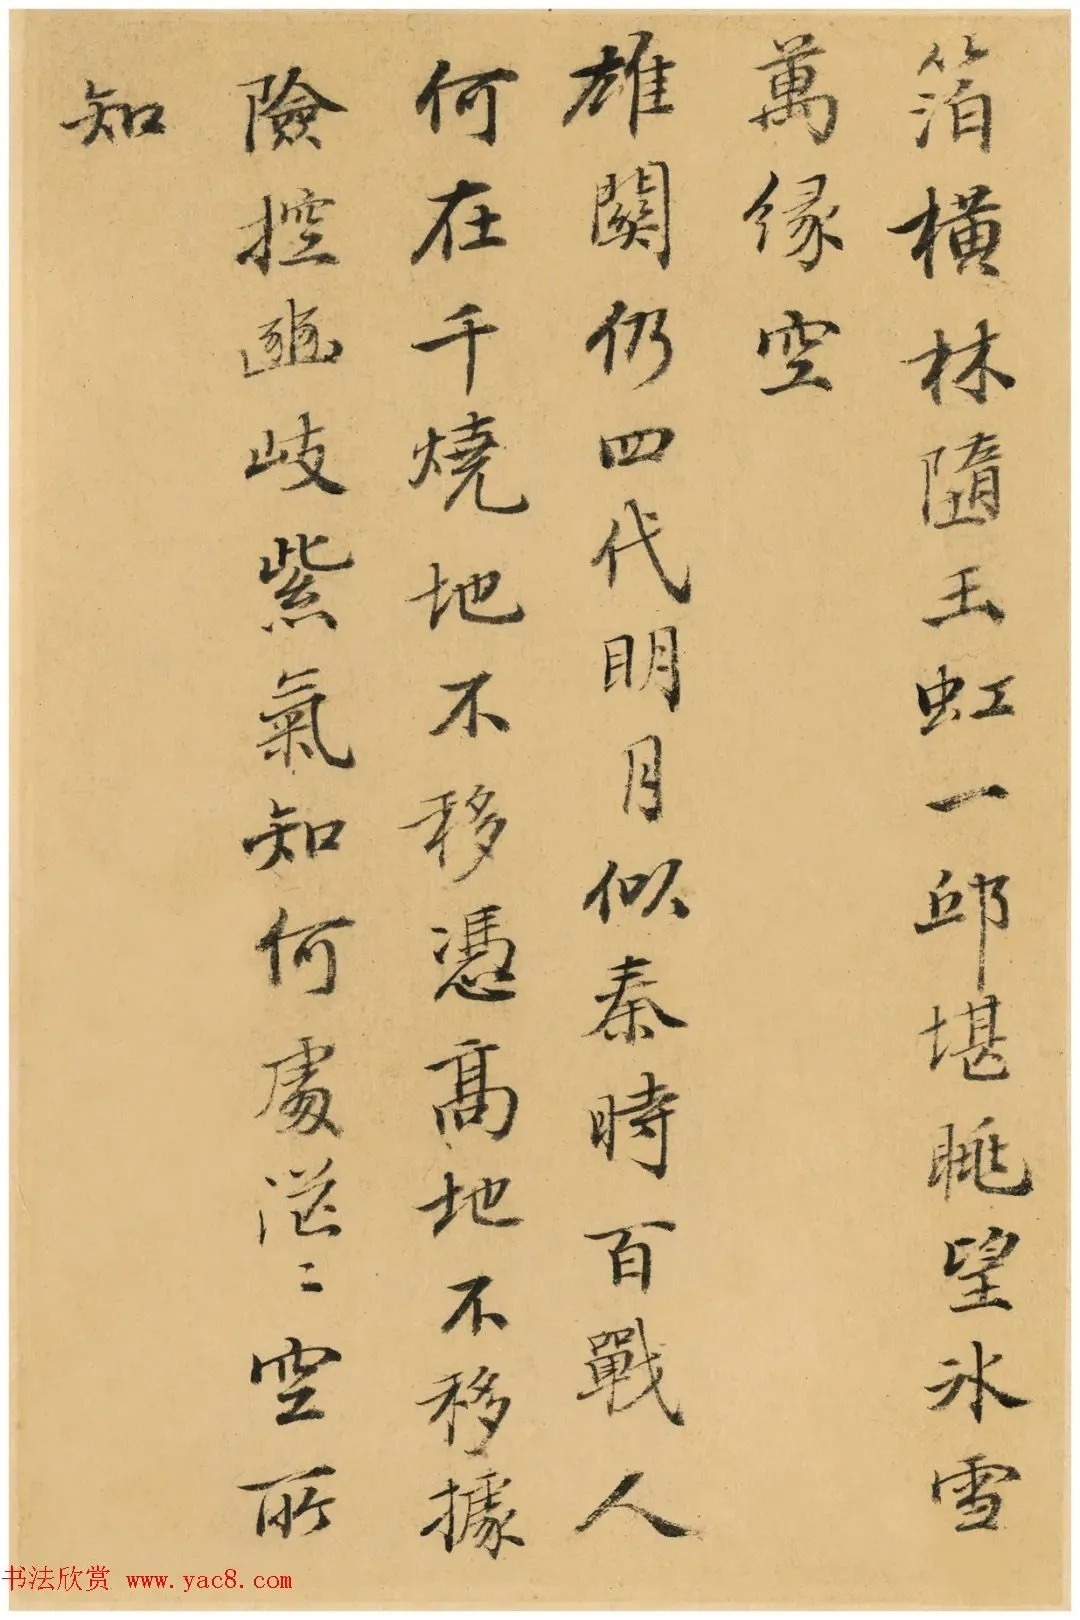 箔橫林隨玉虹一邱堪眺望冰雪
萬緣空
雄関仍四代明月似秦時百戰人
何在千燒地不移憑高地不移據
險控豳岐紫氣知何處茫〻空所
知
书法欣赏 www.yac8.com